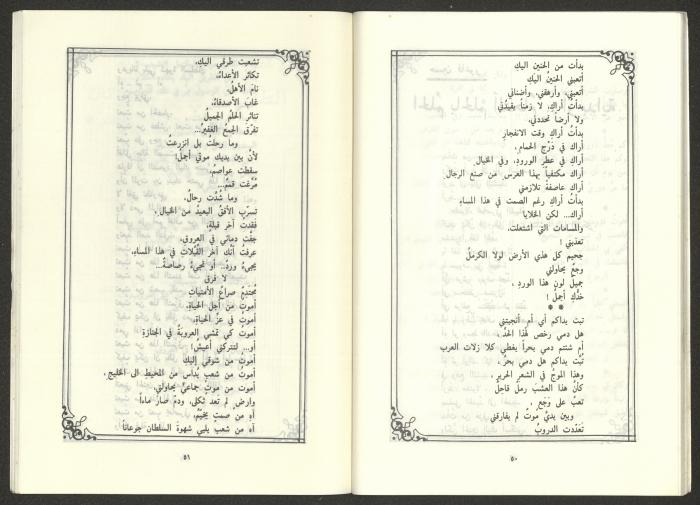 بدأت من الحنين اليكِ
أتعبني الحنينُ اليكِ
أتعبني، وأرهقني، وأضناني
بدأتُ أراكِ، لا زمناً يقيّدني
ولا أرضاً تحددني.
بدأتُ أراكِ وقت الانفجارِ
أراك في دَرَج الحمام.
أراكِ في عطر الورودِ، وفي الخيال
أراك مكتفياً بهذا العرس من صنع الرجال
أراك عاصفةً تلازمني
بدأتُ أراكِ رغم الصمت في هذا المساءِ
أراك... لكن الخلايا
والمسامات التي اشتعلت،
تعذبني !
جحيم كل هذي الأرض لولا الكرملُ
وجع يحاولني
جميلٌ لون هذا الوردِ ،
خدُّكِ أجملُ !
* *
تبت يداكم أي أم أنجبتني
هل دمي رخص لهذا الحدِّ ،
أم شئتم دمي بحراً يغطي كلا زلات العرب
تُبَّت يداكم هل دمي بحرٌ .
وهذا الموجُ في الشعر الحريرِ ،
كأنَّ هذا العشبَ رملٌ قاحلٌ
تعبٌ على وَجَعٍ .
وبين يديَّ موتٌ لم يفارقني
تعدّدت الدروبُ
٥٠
تشعبت طرقي اليكِ،
تكاثر الأعداءُ،
نام الأهلُ،
غابَ الأصدقاءُ،
تناثر الحلم الجميلُ
تفرّق الجمعُ الغفيرُ...
وما رحلتُ بل انزرعت
لأنَّ بين يديك موتي أجملُ!
سقطت عواصمُ،
مُرّغت قممٌ...
وما شُدّت رحالُ،
تسرّب الأفقُ البعيدُ من الخيال .
فقدتُ آخر قبلةٍ،
جفّت دمائي في العروقِ،
عرفتُ أنّكِ آخر القُبلاتِ في هذا المساءِ.
يجيءُ وردٌ.. أو تجيءُ رصاصةٌ...
لا فرق
مُحتَدِمٌ صراعُ الأمنياتِ
أموتُ من أجل الحياةِ.
أموت في عزِّ الحياةِ.
أموت كي تمشي العروبةُ في الجنازة
أو... لتتركني أعيش!
أموتُ من شوقي إليكِ
أموتُ من شعبٍ يُداس من المحيط الى الخليج.
أموت من موتٍ جماعيٍّ يحاولني،
وارضٍ لم تعد ثكلى، ودمٍ صارَ ماءاً
آهِ من صمتٍ يخيّمُ،
آهِ من شعبٍ يلبي شهوةَ السلطان جوعاناً
٥١